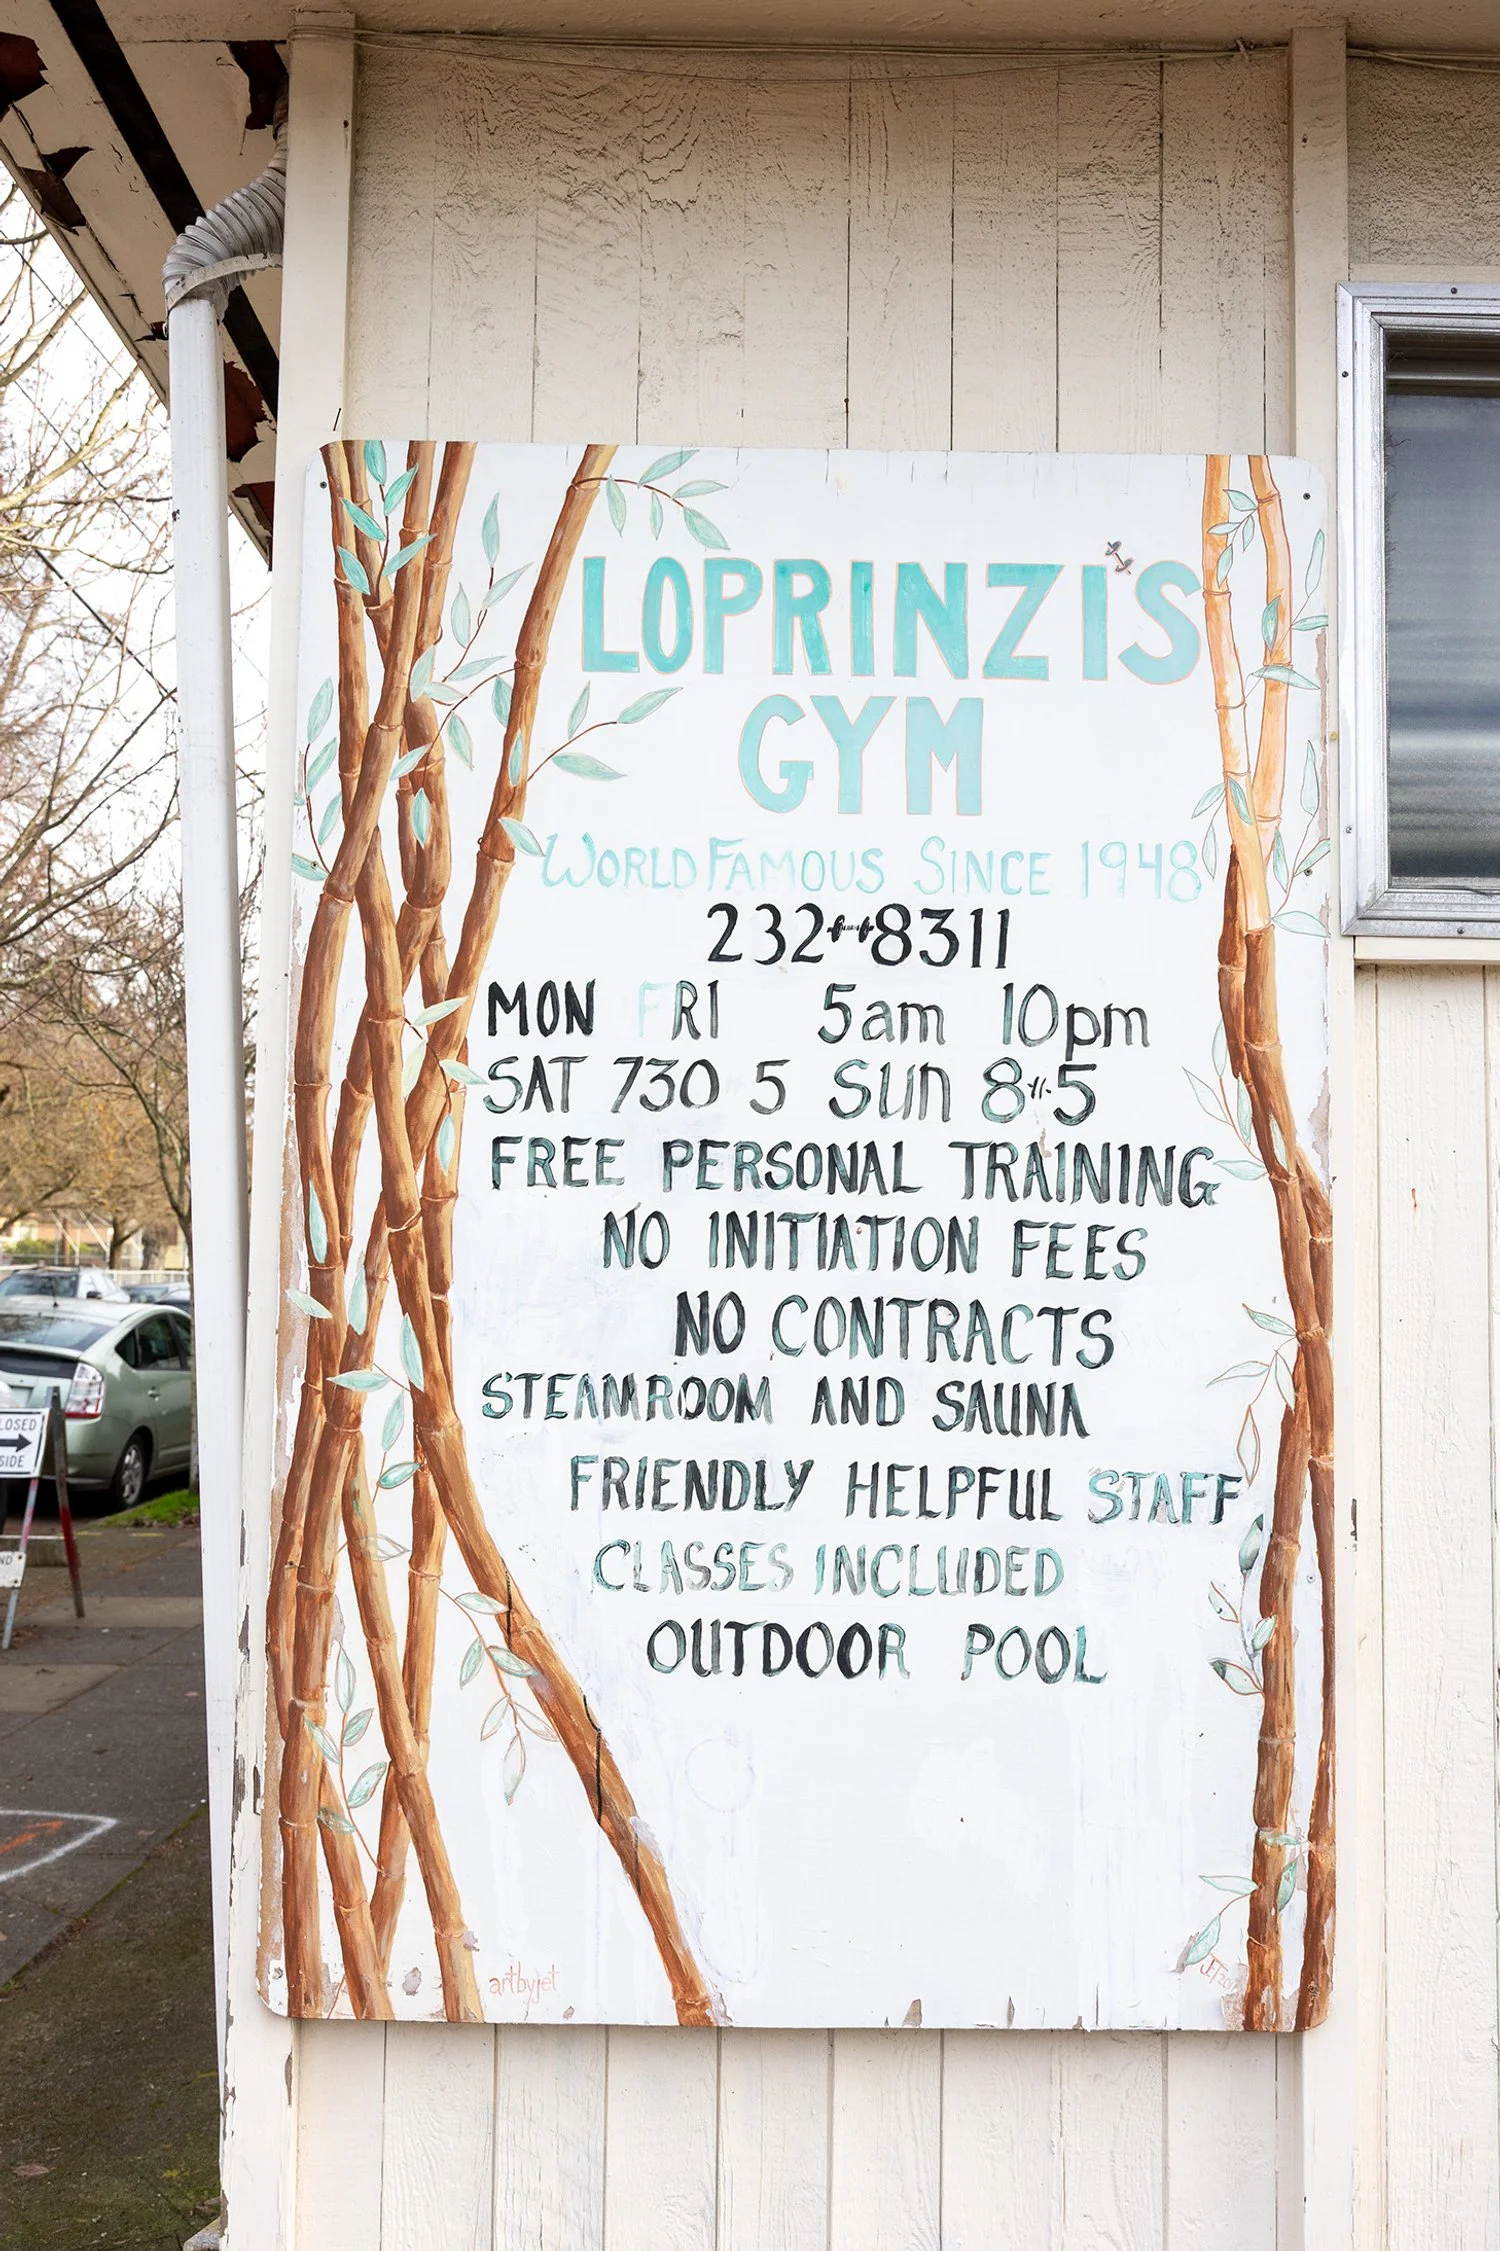 LOPRINZI'S
GYM
WORLD FAMOUS SINCE 1948
232-8311
MON FRI 5am 10pm
SAT 730 5 SUN 8-5
FREE PERSONAL TRAINING
NO INITIATION FEES
NO CONTRACTS
STEAMROOM AND SAUNA
FRIENDLY HELPFUL STAFF
CLASSES INCLUDED
OUTDOOR POOL
artbyjet
LOSED
SIDE